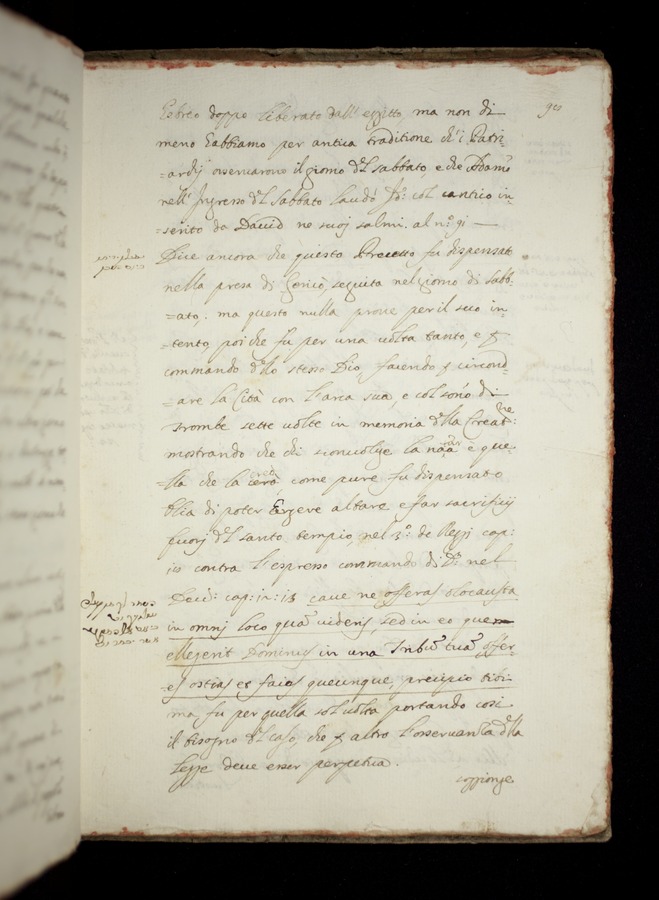 Ebreo doppo liberato dall' egitto, ma non di
meno habbiamo per antica traditione ch'i Patri-
=archj osservarono il giorno d'l sabbato, e che Adamo
nell' Ingresso d'l sabbato laudò col cantico in-
=serito da David ne suoj salmi. al n.° 91
Dice ancora che questo Precetto fu dispensato
nella presa di Gericò, seguita nel giorno di sabb-
=ato; ma questo nulla prova per il suo in-
=tento, poi che fu per una volta tanto, e
commando d'llo stesso Dio, facendo circond-
=are la Cità con l'arca sua, e col sono di
trombe sette volte in memoria d'lla Creat:ne
mostrando che chi sconvolge la è que-
=lla che la creò, come pure fu dispensato
Elia di poter Ergere altare e far sacrifitij
fuorj d'l santo tempio, nel 3.° de Reggi cap:
18 contra l'espresso commando di D: nel
Deut: cap: 12: 13 cave ne offeras olocausta
in omnj loco quem videris, sed in eo quem
ellegerit Dominus in una Tribu tuarum offer-
=es ostias et facies quecunque, precipio tibi-
ma fu per quella sol volta portando cosi
il bisogno d'l caso, che altro l'osservanza d'lla
Legge deve esser perpetua.
soggionge